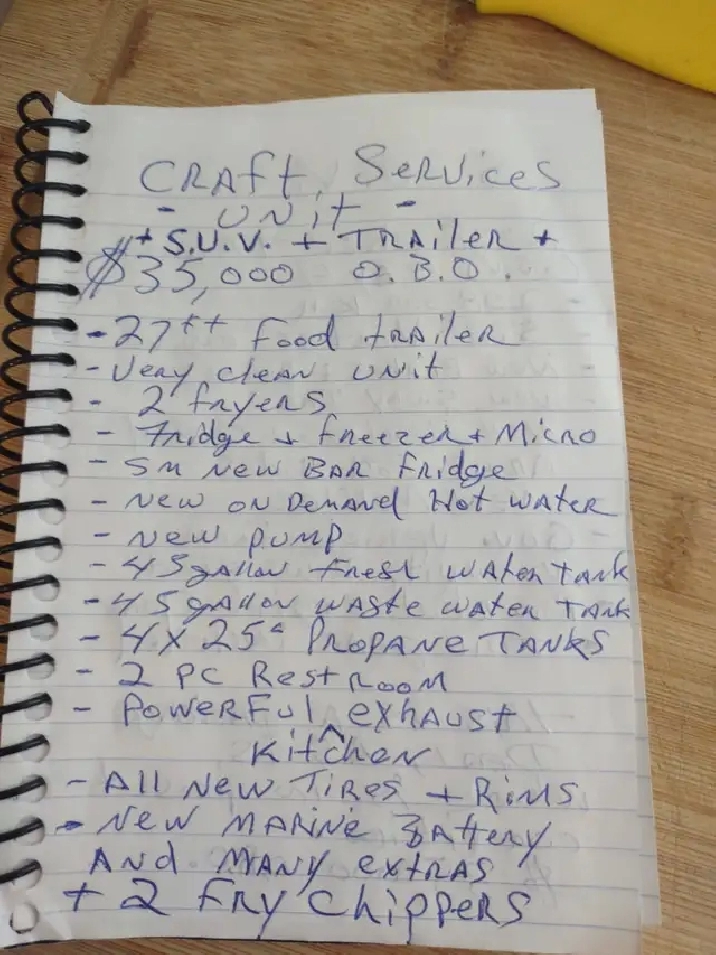 CRAft Services
- UNit -
+ S.U.V. + TRAiler +
$35,000 O.B.O.
- 27ft food tRAileR
- Very cleAN UNit
- 2 fryeRs
- Fridge + fReezeR + Micro
- Sm New BAR fRidge
- New ON DemANd Hot WAteR
- New pump
- 45 gallon fresh WAteR tANk
- 45 gAllon WAste WAteR TANk
- 4 x 25 PROpANe TANKS
- 2 PC RestRooM
- POWERFul ^ exhAust
KitcheN
- All New TiRes + Rims
- New MARiNe BAtteRy
ANd MANy extRAs
+ 2 fRy ChippeRs